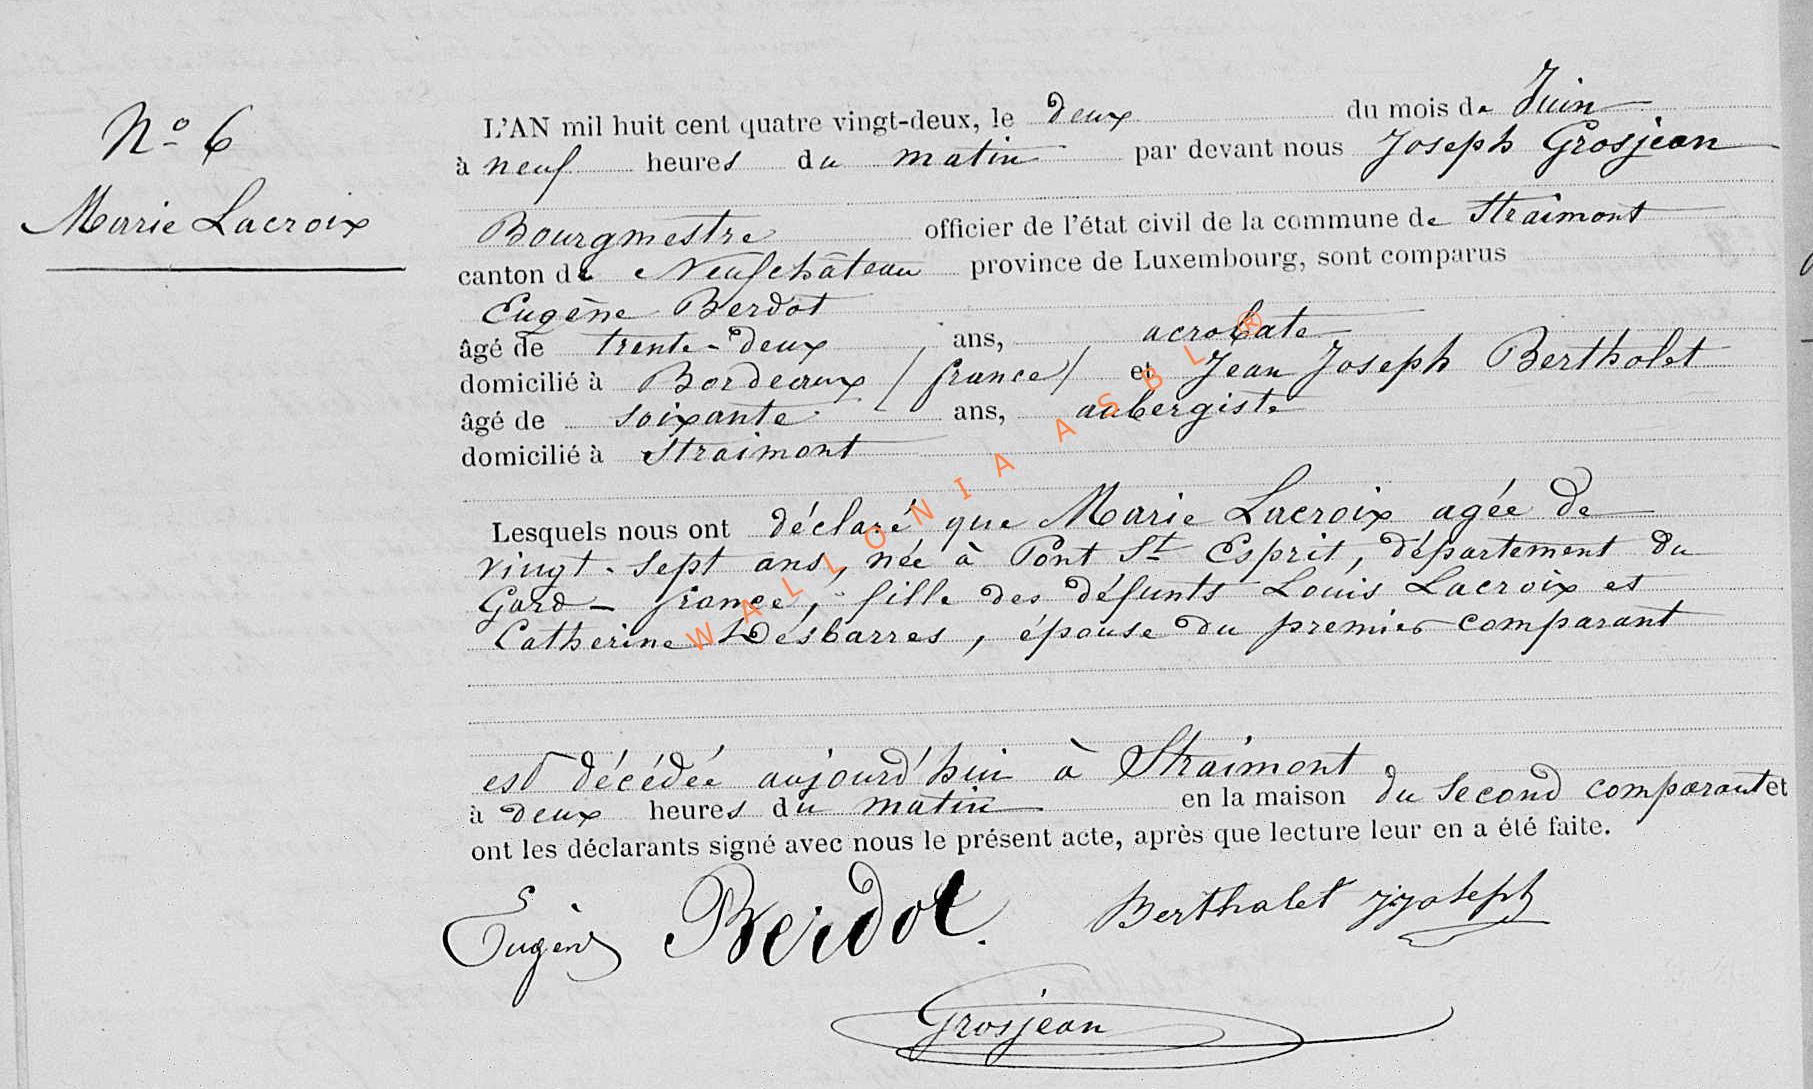 Nº 6
Marie Lacroix
L'AN mil huit cent quatre vingt-deux, le deux du mois de Juin
à neuf heures du matin par devant nous Joseph Grosjean
Bourgmestre officier de l'état civil de la commune de Straimont
canton de Neufchâteau province de Luxembourg, sont comparus
Eugène Berdot
âgé de trente-deux ans, acrobate
domicilié à Bordeaux (france) et Jean Joseph Bertholet
âgé de soixante ans, aubergiste
domicilié à Straimont
Lesquels nous ont déclaré que Marie Lacroix agée de
vingt-sept ans, née à Pont St Esprit, département du
Gard - france, fille des défunts Louis Lacroix et
Catherine Désbarres, épouse du premier comparant
est décédée aujourd'hui à Straimont
à deux heures du matin en la maison du second comparant et
ont les déclarants signé avec nous le présent acte, après que lecture leur en a été faite.
Eugène Berdot. Berthalet jjoseph
Grosjean
WALLONIA ASBL ®